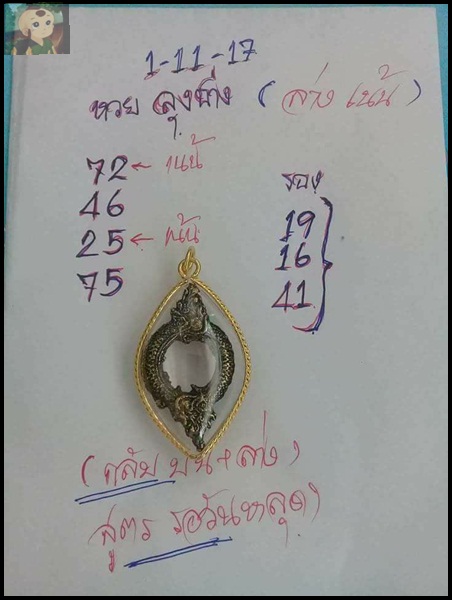 1-11-17
หวย ลุงยิ่ง (ล่าง เน้น)
72 ← เน้น
46
25 ← เน้น
75
รอง
19
16
41
(กลับ บน + ล่าง)
สูตร รอวันหลุด)